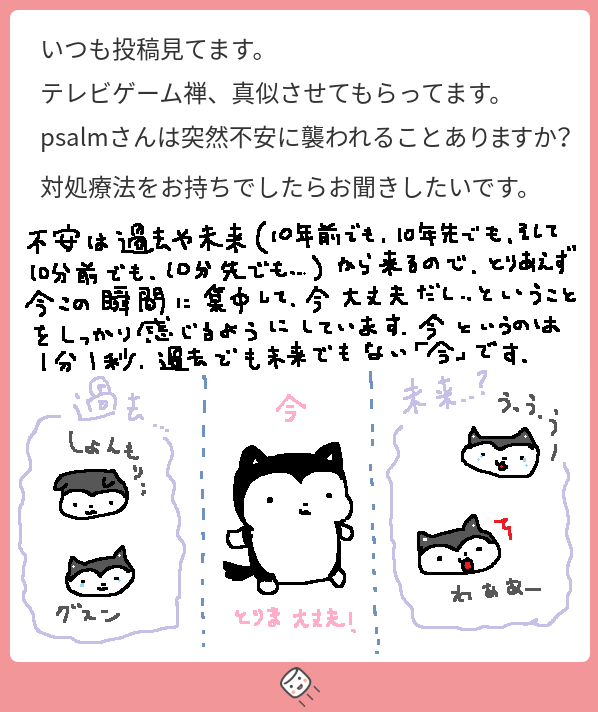 いつも投稿見てます。
テレビゲーム禅、真似させてもらってます。
psalmさんは突然不安に襲われることありますか？
対処療法をお持ちでしたらお聞きしたいです。
不安は過去や未来(10年前でも、10年先でも、そして
10分前でも、10分先でも…)から来るので、とりあえず
今この瞬間に集中して、今大丈夫だし…ということ
をしっかり感じるようにしています。今というのは
1分1秒、過去でも未来でもない「今」です。
過去…
今
未来…?
しょんもり…
うっうっうー
グスン
わああー
とりま大丈夫!